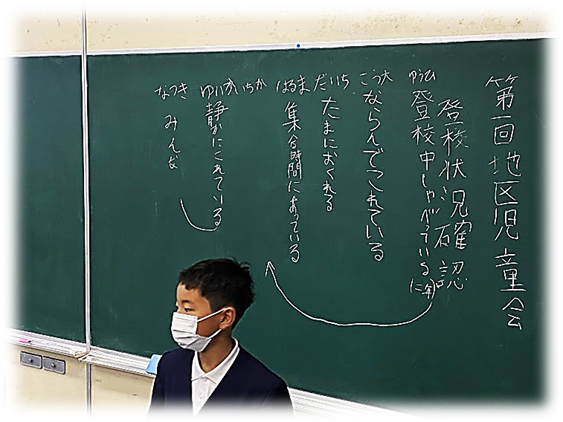 第一回地区児童会
登校状況確認
ゆうひ
登校中しゃべっている
こう大
ならんでこれている
だいち
たまにおくれる
はるま
集合時間にあっている
ゆい
静かにこれている
なつき
みんな